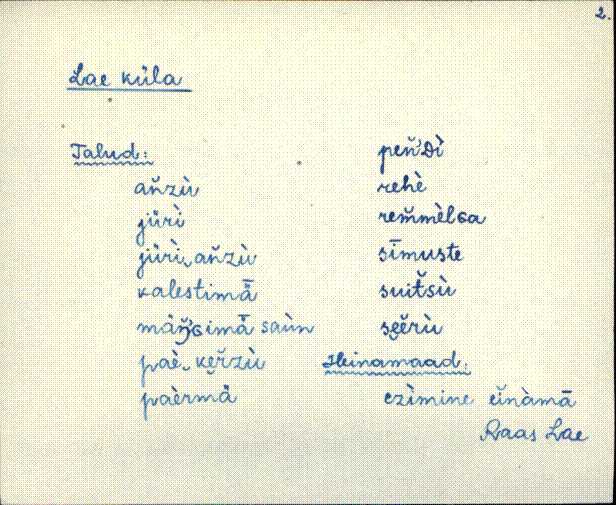 2.
Lae küla
Talud:
an̆zù
jürì
jürì‿an̆zù
kalestimä̆
mäŋ̆ɢimä̆ saùn
paè‿ker̆zù
paèrmä̆
pen̆'ᴅì
rehè
rem̆mèlɢa
sīmuste
suit̆sù
sĕĕrù
Heinamaad:
ezìmine eĭnàmā
Raas Lae